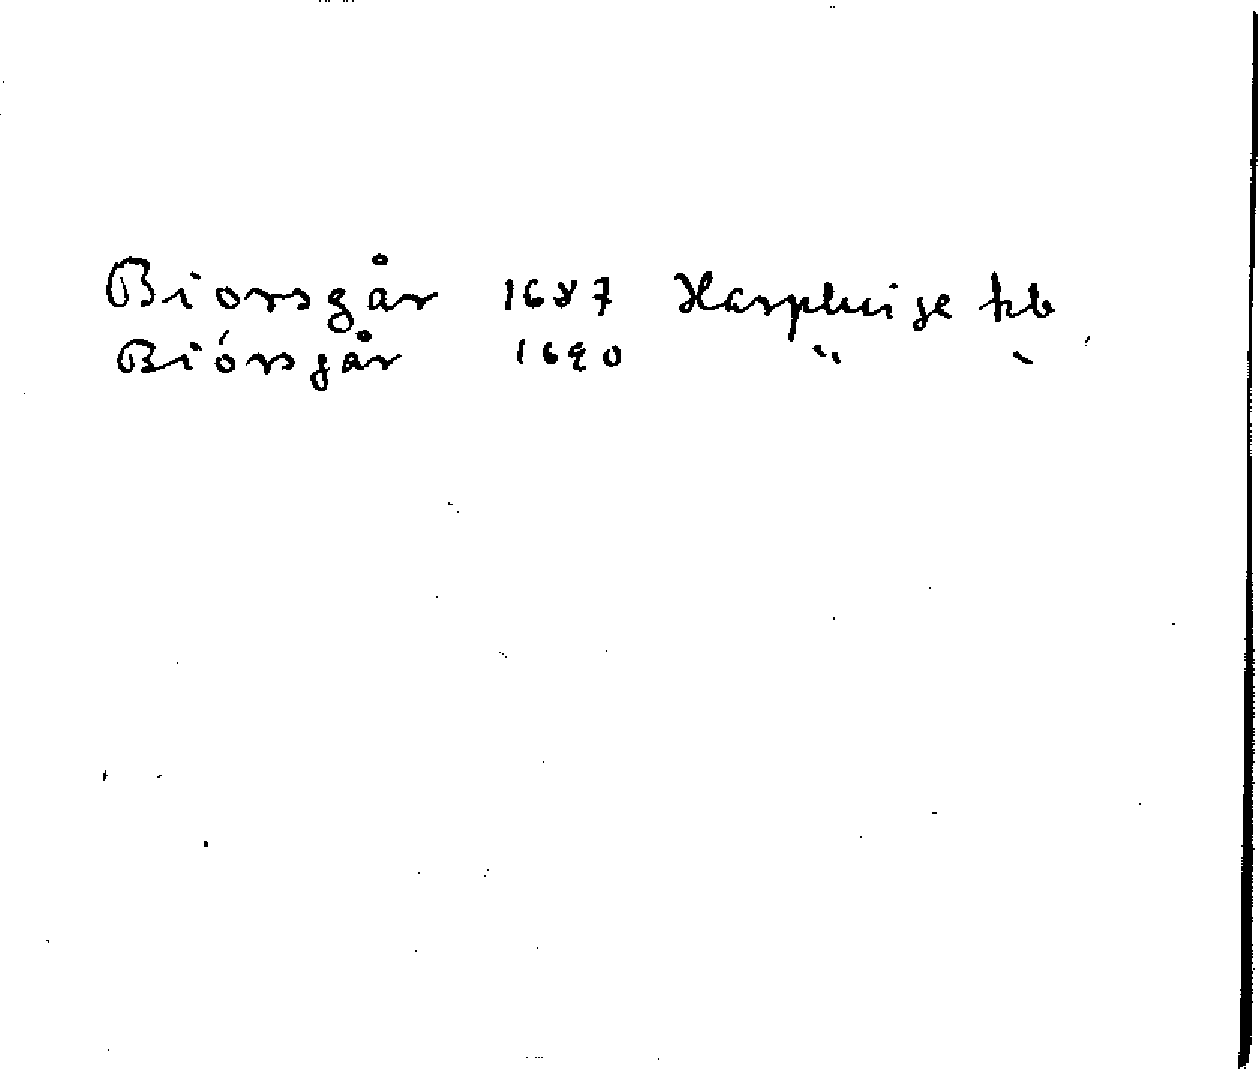 Biorsgår 1687 Harplinige kb
Biórsgår 1690 " "